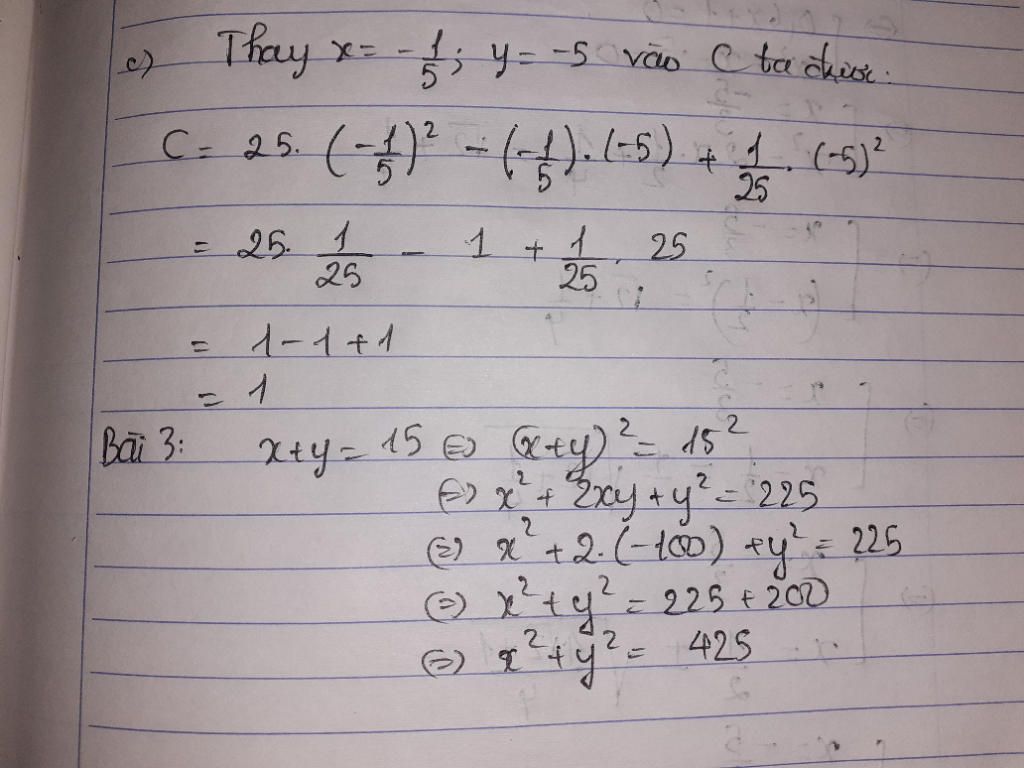 c) Thay x = -1/5; y = -5 vào C ta được:
C = 25. (-1/5)² - (-1/5).(-5) + 1/25 . (-5)²
= 25. 1/25 - 1 + 1/25 . 25
= 1 - 1 + 1
= 1
Bài 3: x+y = 15 ⇔ (x+y)² = 15²
⇔ x² + 2xy + y² = 225
⇔ x² + 2.(-100) + y² = 225
⇔ x² + y² = 225 + 200
⇔ x² + y² = 425